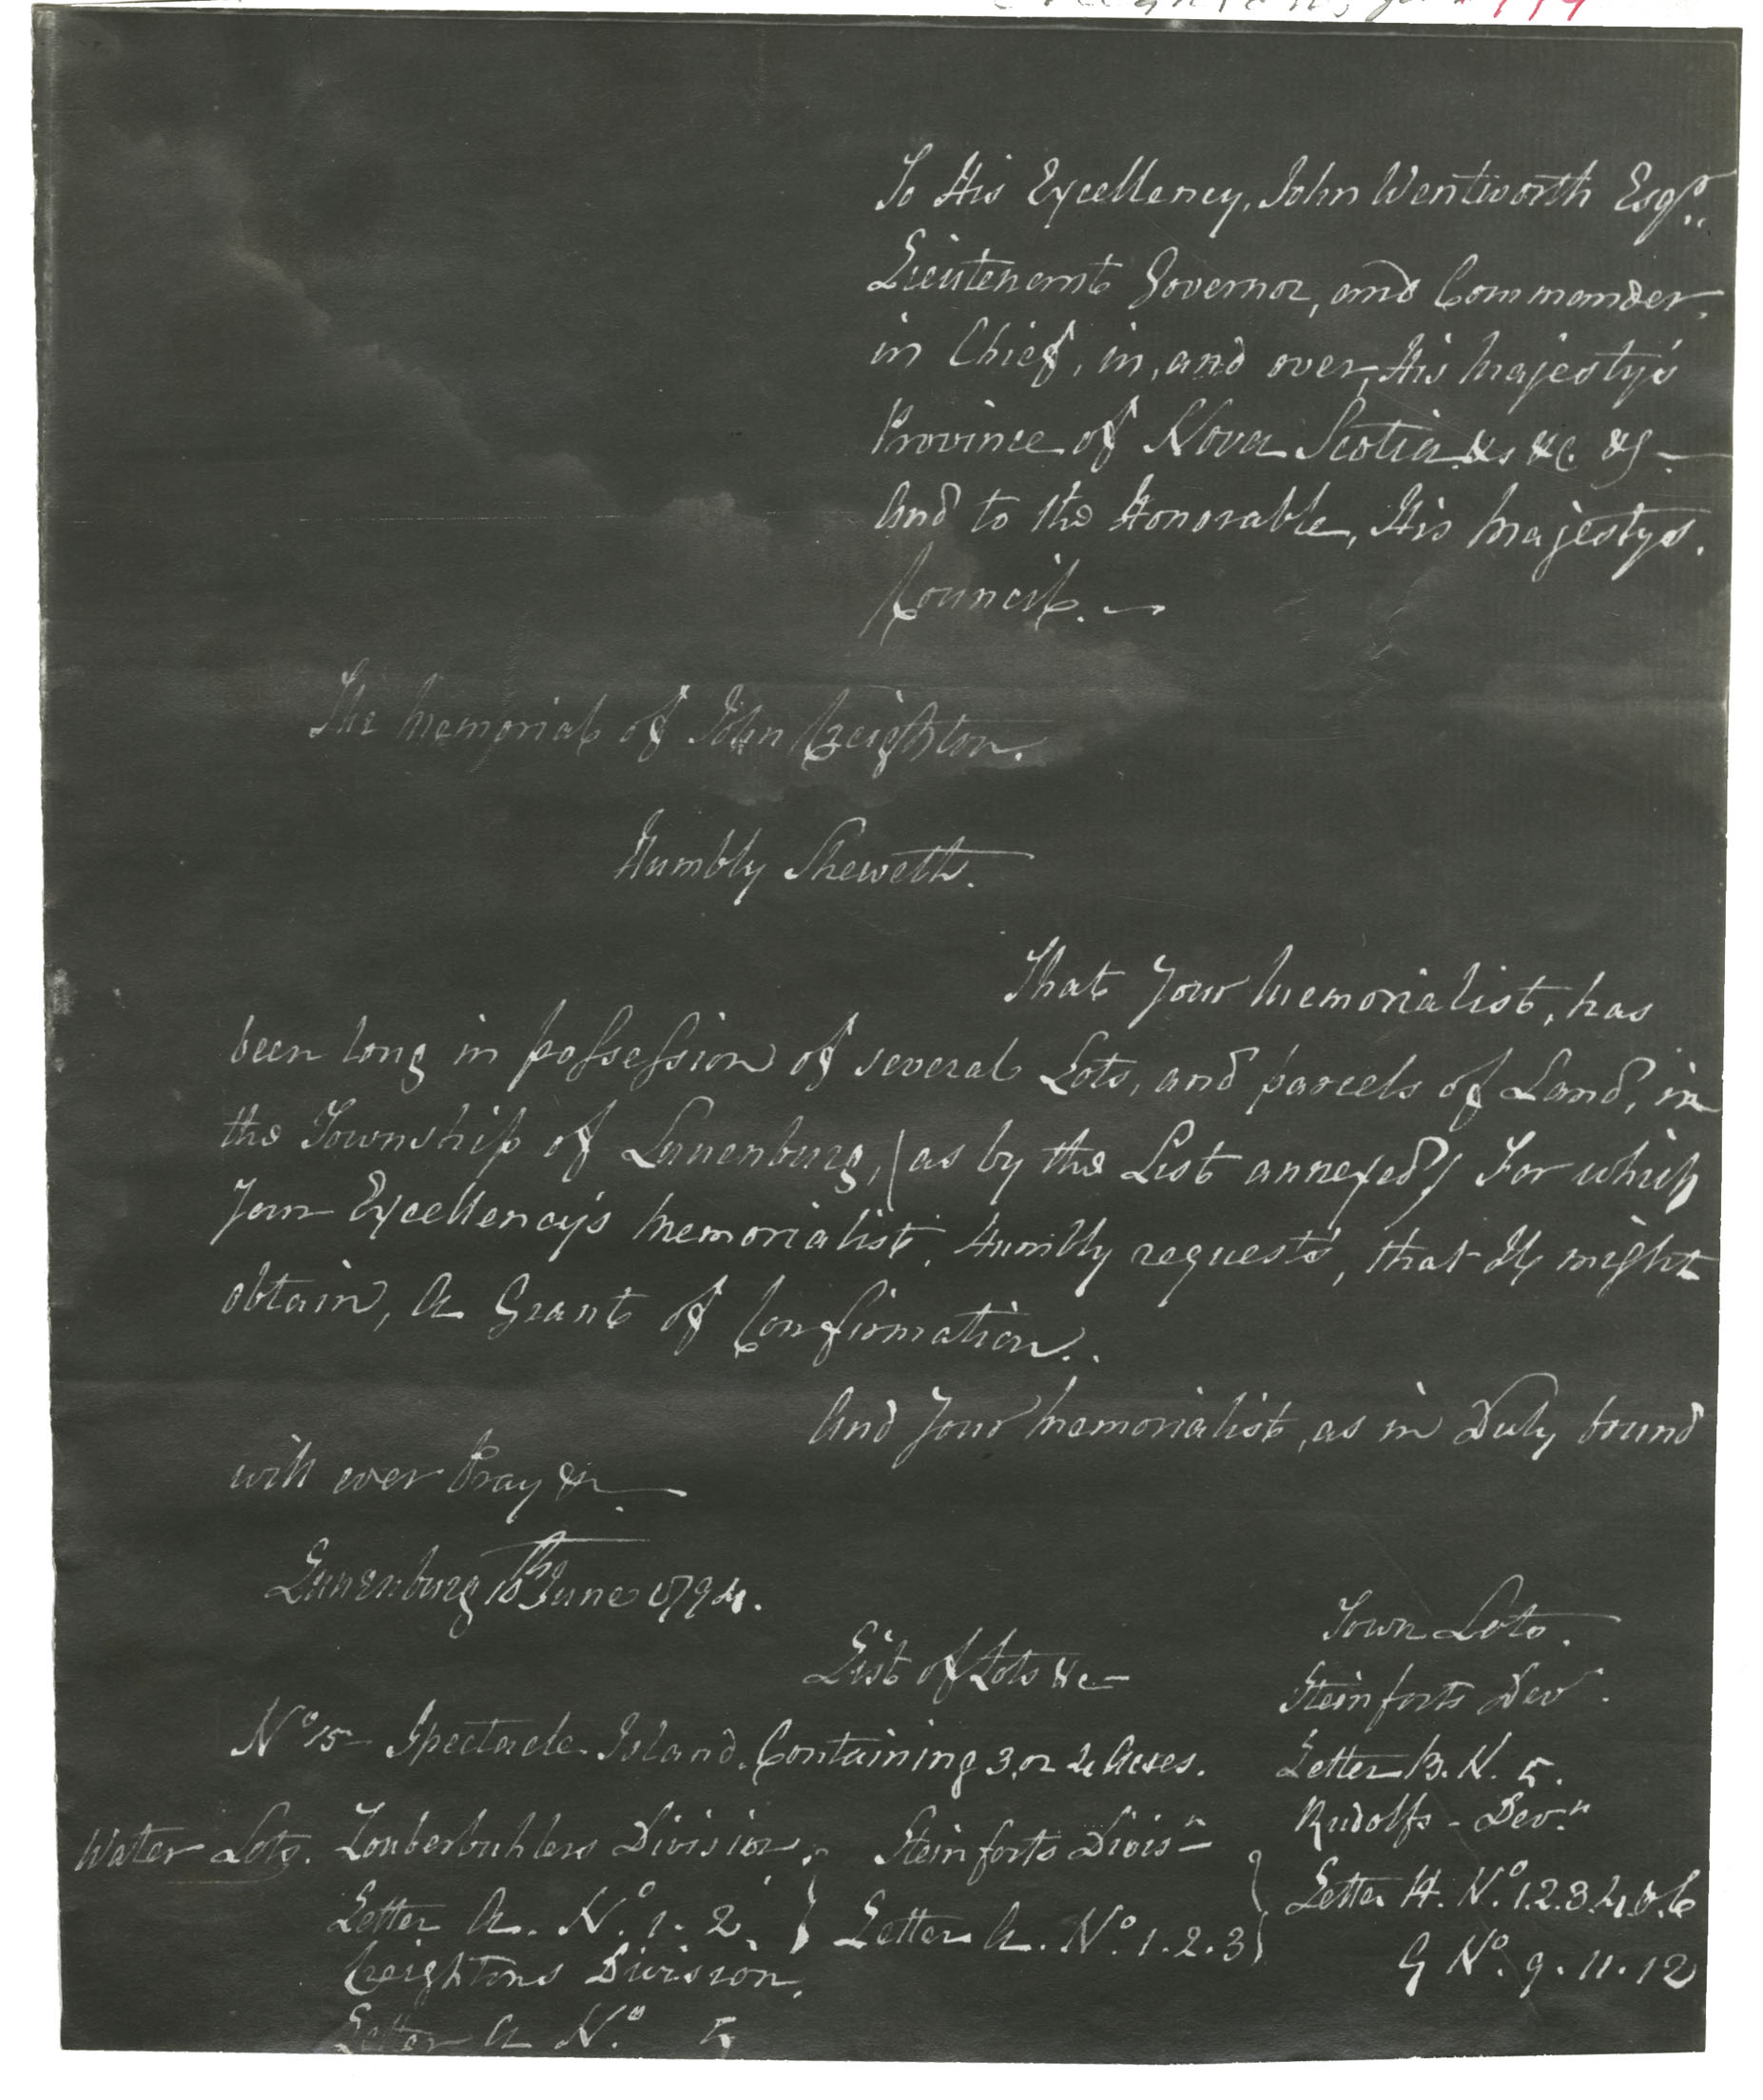 To His Excellency, John Wentworth Esqr..
Lieutenant Governor, and Commander,
in Chief, in, and over, His Majesty's
Province of Nova Scotia &c &c. &c —
And to the Honorable, His Majestys.
Council. —
The Memorial of John Creighton.
Humbly Sheweth.
That Your Memorialist, has
been long in possession of several Lots, and parcels of Land, in
the Township of Lunenburg, (as by the List annexed) For which
Your Excellency's Memorialist, Humbly requests, that He might
obtain, A Grant of Confirmation..
And Your Memorialist, as in Duty bound
will ever Pray &c —
Lunenburg June 1794.
List of Lots &c —
No 15 — Spectacle Island. Containing 3, or 4 Acres.
Water Lots. Zouberbuhlers Division,
Letter A. No 1. 2.
Creightons Division,
Letter A No 5
Steinforts Divisn —
Letter A. No 1. 2. 3
Town Lots.
Steinforts Dev.
Letter B. N. 5.
Rudolfs - Devn
Letter H. No 1. 2. 3. 4. 5. 6
G No. 9. 11. 12